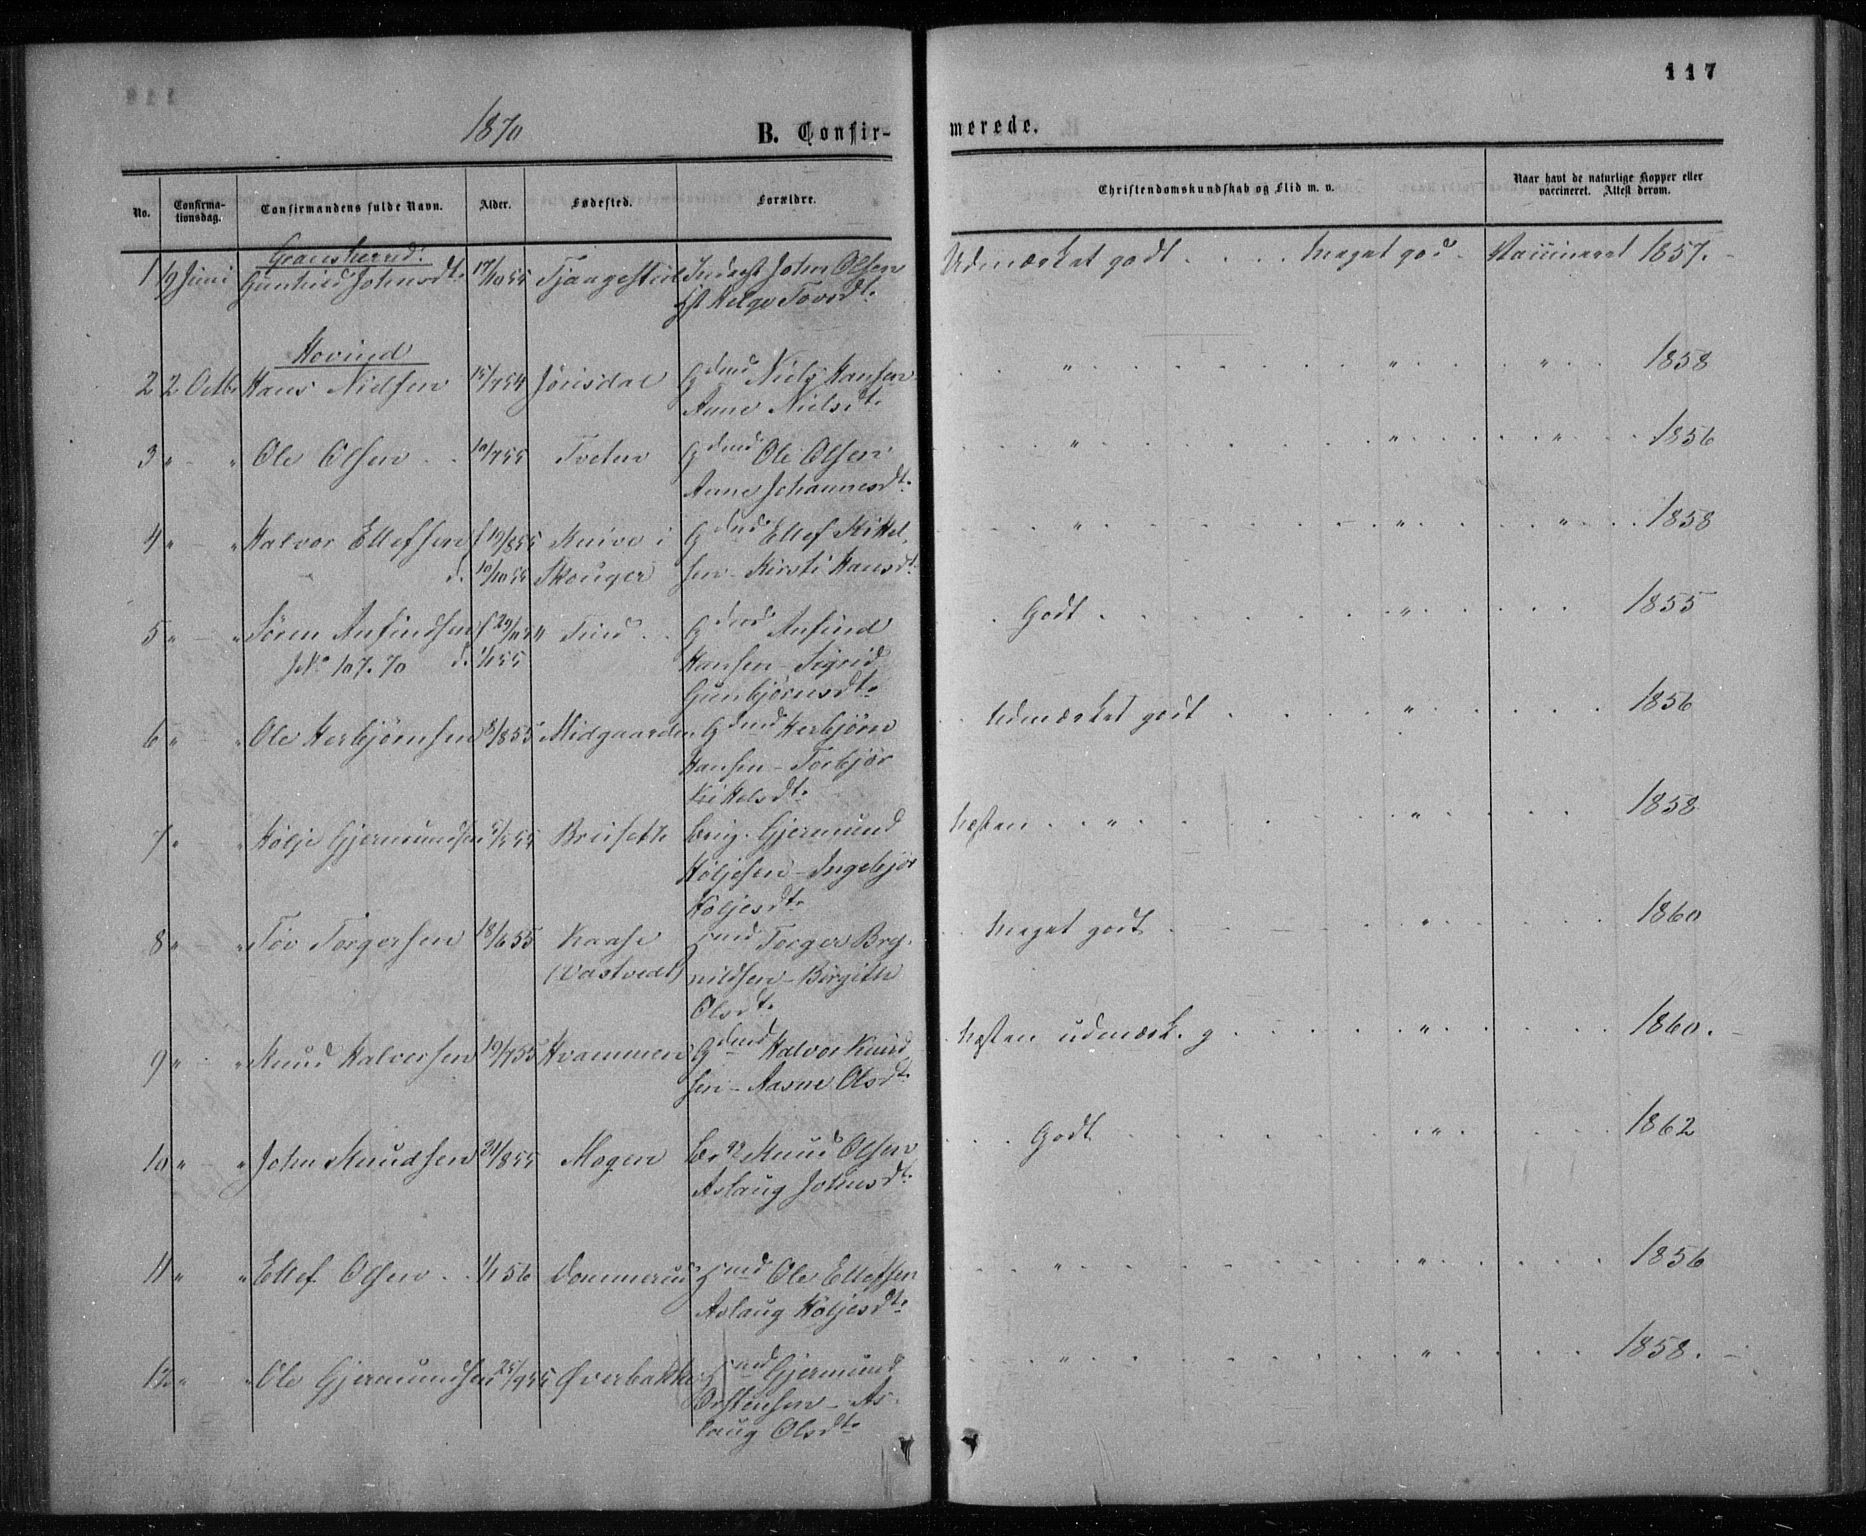 117
1870
B. Confir-
merede.
No.
Confirma-
tionsdag.
Confirmandens fulde Navn.
Alder.
Fødested.
Forældre.
Christendomskundskab og Flid m. v.
Naar havt de naturlige Kopper eller
vaccineret. Attest derom.
Gransherred.
1 19 Juni Gunhild Johnsdt. 17/10 55 Tjaagestul Inderst John Olsen
Helge Tovsdt.
Udmærket godt . . . . Meget god. Vaccineret 1857.
Hovind
2 2 Octbr Hans Nielsen 15/7 54 Jørisdal Gdmd Niels Hansen
Anne Nielsdt.
" " " 1858
3 " " Ole Olsen 10/7 55 Tveten Gdmd Ole Olsen
Anne Johannesdt.
" " " 1856
4 " " Halvor Ellefsen f 19/8 55 Kuive i Gdmd Ellef Kittel
d. 10/10 55 Skouger sen - Kirsti Hansdt.
" " " 1858
5 " " Søren Anfindsen f 29/11 54 Tind Gdmd Anfind
JNo 107.70 d. 1/1 55 Hansen - Sigrid
Gunbjørnsdt.
Godt " 1855
6 " " Ole Herbjørnsen 8/8 55 Midgaarden Gdmd Herbjørn
Hansen - Torbjør
Kittelsdt.
Udmærket godt " 1856
7 " " Hølje Gjermundsen 5/5 55 Bruseth Brug. Gjermund
Høljesen - Ingebjør
Høljesdt.
Næsten " " 1858
8 " " Tov Torgersen 18/6 55 Kaase Hmd Torger Bry-
(Vastvedt) nildsen - Birgith
Olsdt.
Meget godt " 1860
9 " " Knud Halvorsen 19/7 55 Hvammen Gdmd Halvor Knud
sen - Aasne Olsdt.
Næsten udmærk. g " 1860.
10 " " John Knudsen 21/8 55 Mogen Knud Olsen
Aslaug Johnsdt.
Godt " 1862
11 " " Ellef Olsen 1/1 56 Dommerud Hmd Ole Ellefsen
Aslaug Høljesdt.
" " 1856
12 " " Ole Gjermundsen 25/9 55 Øverbakke Hmd Gjermund
Østensen - As-
laug Olsdt.
" " 1858.